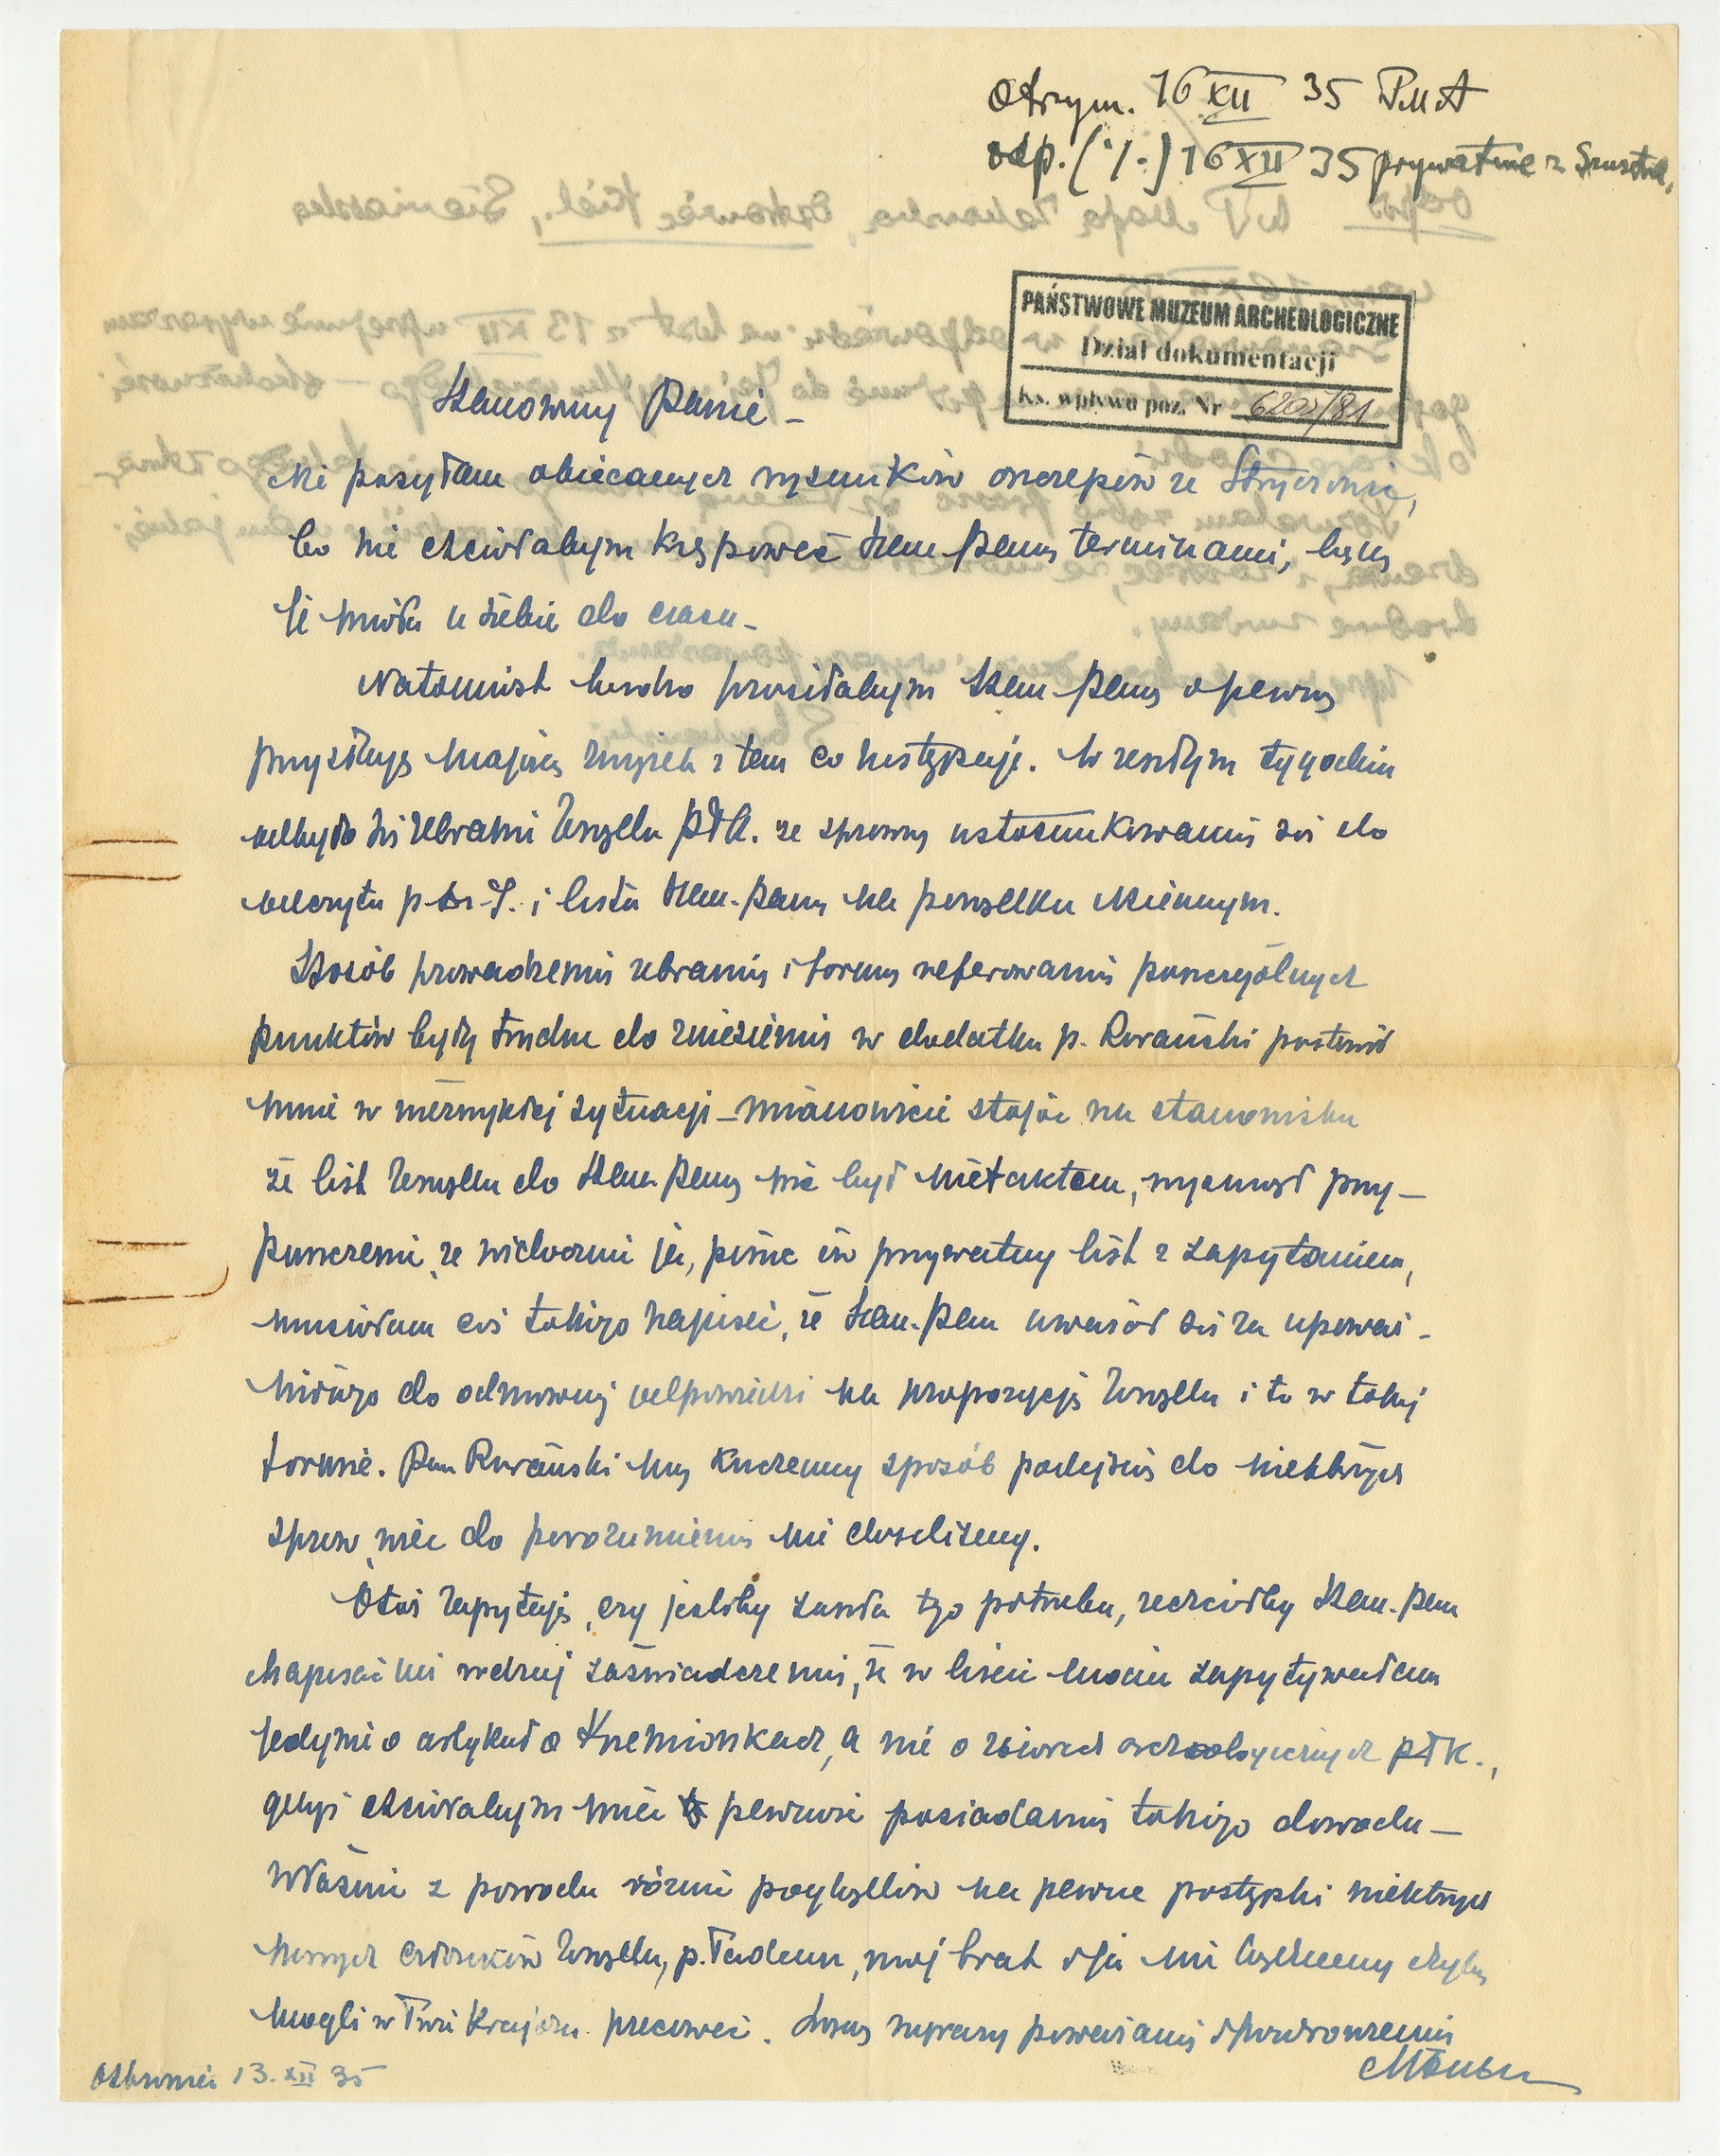 Otrzym. 16 XII 35 PMA
odp. (·/·) 16 XII 35 prywatnie z
PAŃSTWOWE MUZEUM ARCHEOLOGICZNE
Dział dokumentacji
ks. wpływu poz. Nr 6200/81
Szanowny Panie –
Nie posyłam obiecanych rysunków skorep ze
bo nie chciałabym krępować Szan Pana terminami,
je miała u siebie do czasu –
Natomiast bardzo prosiłabym Szan Pana o pewną
przysługę mającą związek z tem co następuje. W zeszłym tygodniu
odbyło się zebranie Zarządu PTK. ze sprawą ustosunkowania się do
odczytu p. i listu Szan. Pana na porządku dziennym.
Sposób prowadzenia zebrania i forma referowania poszczególnych
punktów były trudne do zniesienia w dodatku p. postawił
mnie w niezwykłej sytuacji – mianowicie stojąc na stanowisku
że list Zarządu do Szan Pana nie był nietaktem, wysunął przy–
puszczenie, że widocznie ja, pisząc ów prywatny list z zapytaniem,
musiałam coś takiego napisać, że Szan. Pan uważał się za upoważ–
nionego do odmownej odpowiedzi na propozycję Zarządu i to w takiej
formie. Pan ma sposób podejścia do niektórych
spraw, więc do porozumienia nie doszliśmy.
Otóż zapytuję, czy jeśliby zaszła tego potrzeba, zechciałby Szan. Pan
napisać mi rodzaj zaświadczenia, że w liście moim zapytywałam
jedynie o artykuł o Krzemionkach, a nie o zbiorach archeologicznych PTK.,
gdyż chciałabym mieć pewność posiadania takiego dowodu –
Właśnie z powodu różnic poglądów na pewne postępki niektórych
naszych członków Zarządu, p. Tadeusz, mój brat i ja nie będziemy chyba
mogli w Tow. Krajozn. pracować. Łączę wyrazy poważania i pozdrowienia
Ostrowiec 13. XII 35